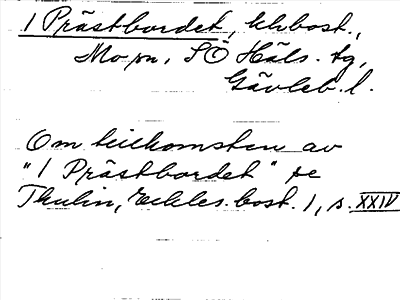 1 Prästbordet, khbost.,
Mo sn, SÖ Häls. tg,
Gävleb. l.
Om tillkomsten av
"1 Prästbordet" se
Thulin, Eckles. bost. 1, s. XXIV